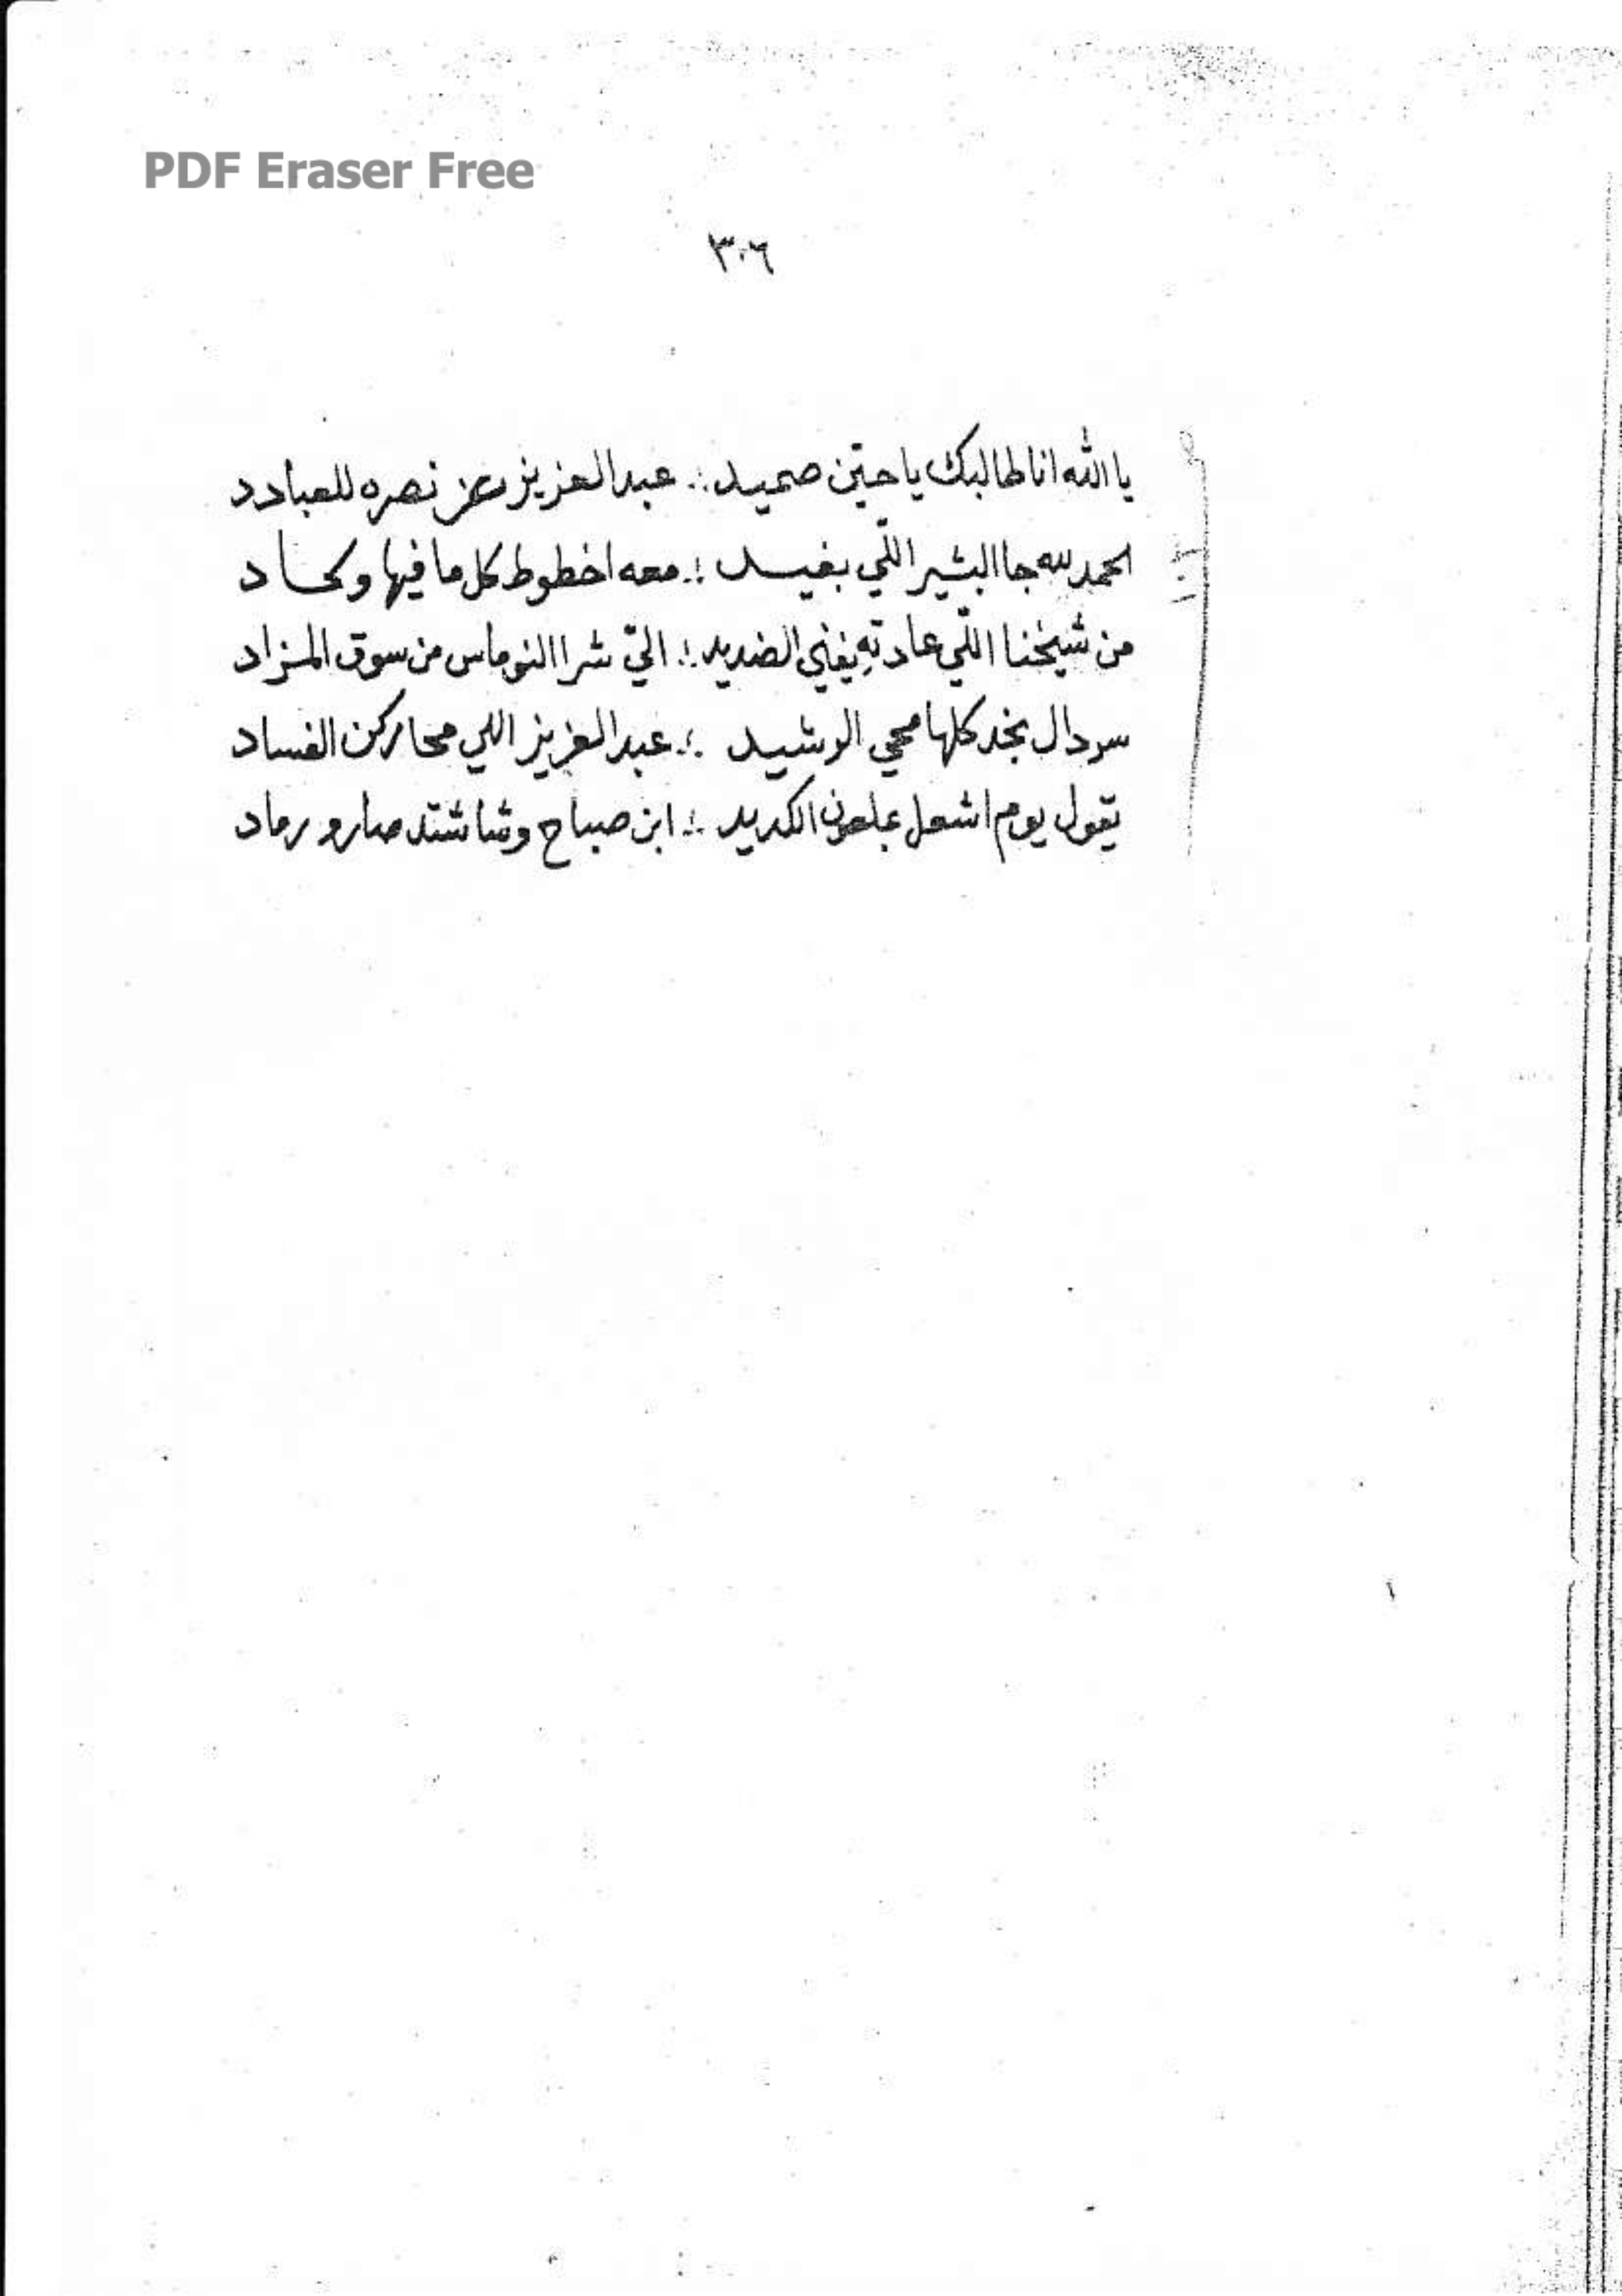 PDF Eraser Free
٣٠٦
يا الله انا طالبك يا حيّن صميد ∴ عبدالعزيز عز نصره للعباد
الحمد لله جا البشير اللّي بفيد ∴ معه اخطوط كل ما فيها وكاد
من شيخنا اللّي عادتهِ يفني الضديد ∴ اليّ شرا النوماس من سوق المزاد
سردال بخد كلها محمي الرشيد ∴ عبدالعزيز اللي محا ركن الفساد
يقول يوم اشعل الكديد ∴ ابن صباح صارو رماد